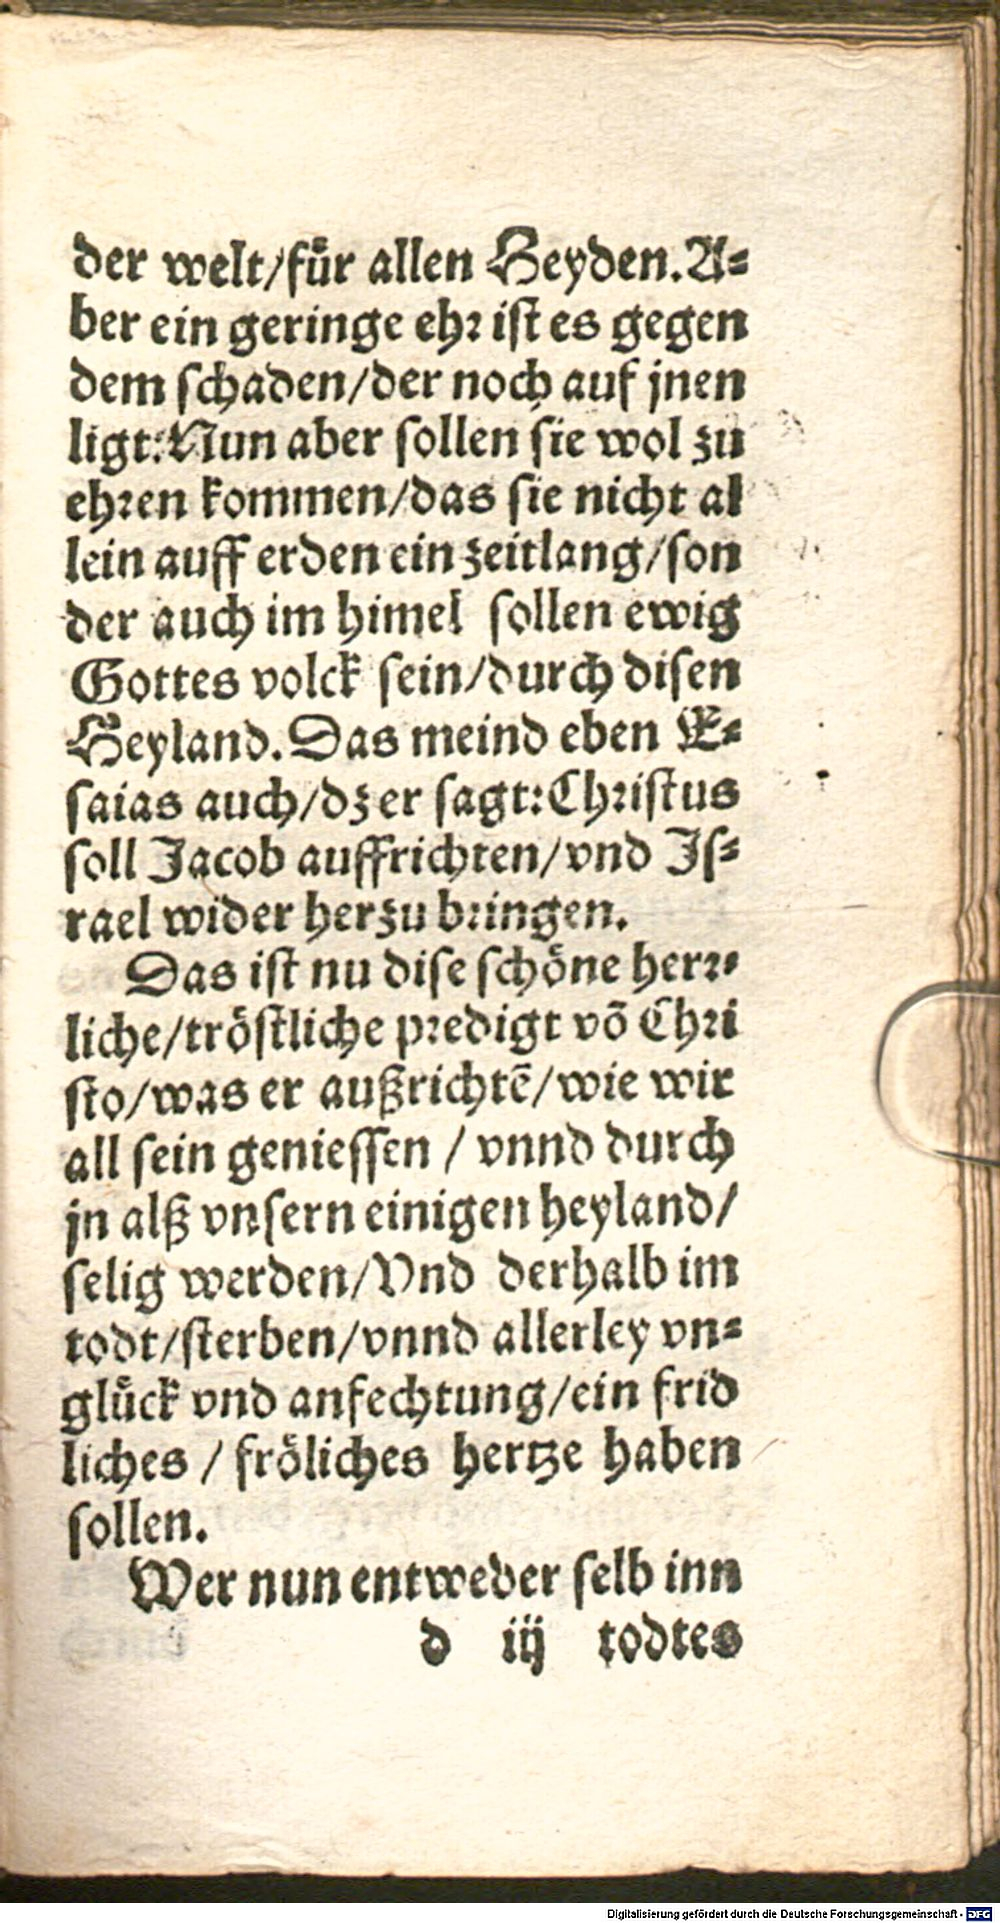 der welt/für allen Heyden. A⸗
ber ein geringe ehꝛ ist es gegen
dem schaden/der noch auf jnen
ligt: Nun aber sollen sie wol zu
ehꝛen kommen/das sie nicht al
lein auff erden ein zeitlang/son
der auch im himel sollen ewig
Gottes volck sein/durch disen
Heyland. Das meind eben E⸗
saias auch/dz er sagt: Chꝛistus
soll Jacob auffrichten/vnd Is⸗
rael wider herzu bꝛingen.
Das ist nu dise schöne herꝛ⸗
liche/tröstliche pꝛedigt võ Chꝛi
sto/was er außrichtẽ/wie wir
all sein geniessen / vnnd durch
jn alß vnsern einigen heyland/
selig werden/Vnd derhalb im
todt/sterben/vnnd allerley vn⸗
glück vnd anfechtung/ein frid
liches / fröliches hertze haben
sollen.
Wer nun entweder selb inn
d iij todtes
Digitalisierung gefördert durch die Deutsche Forschungsgemeinschaft - DFG